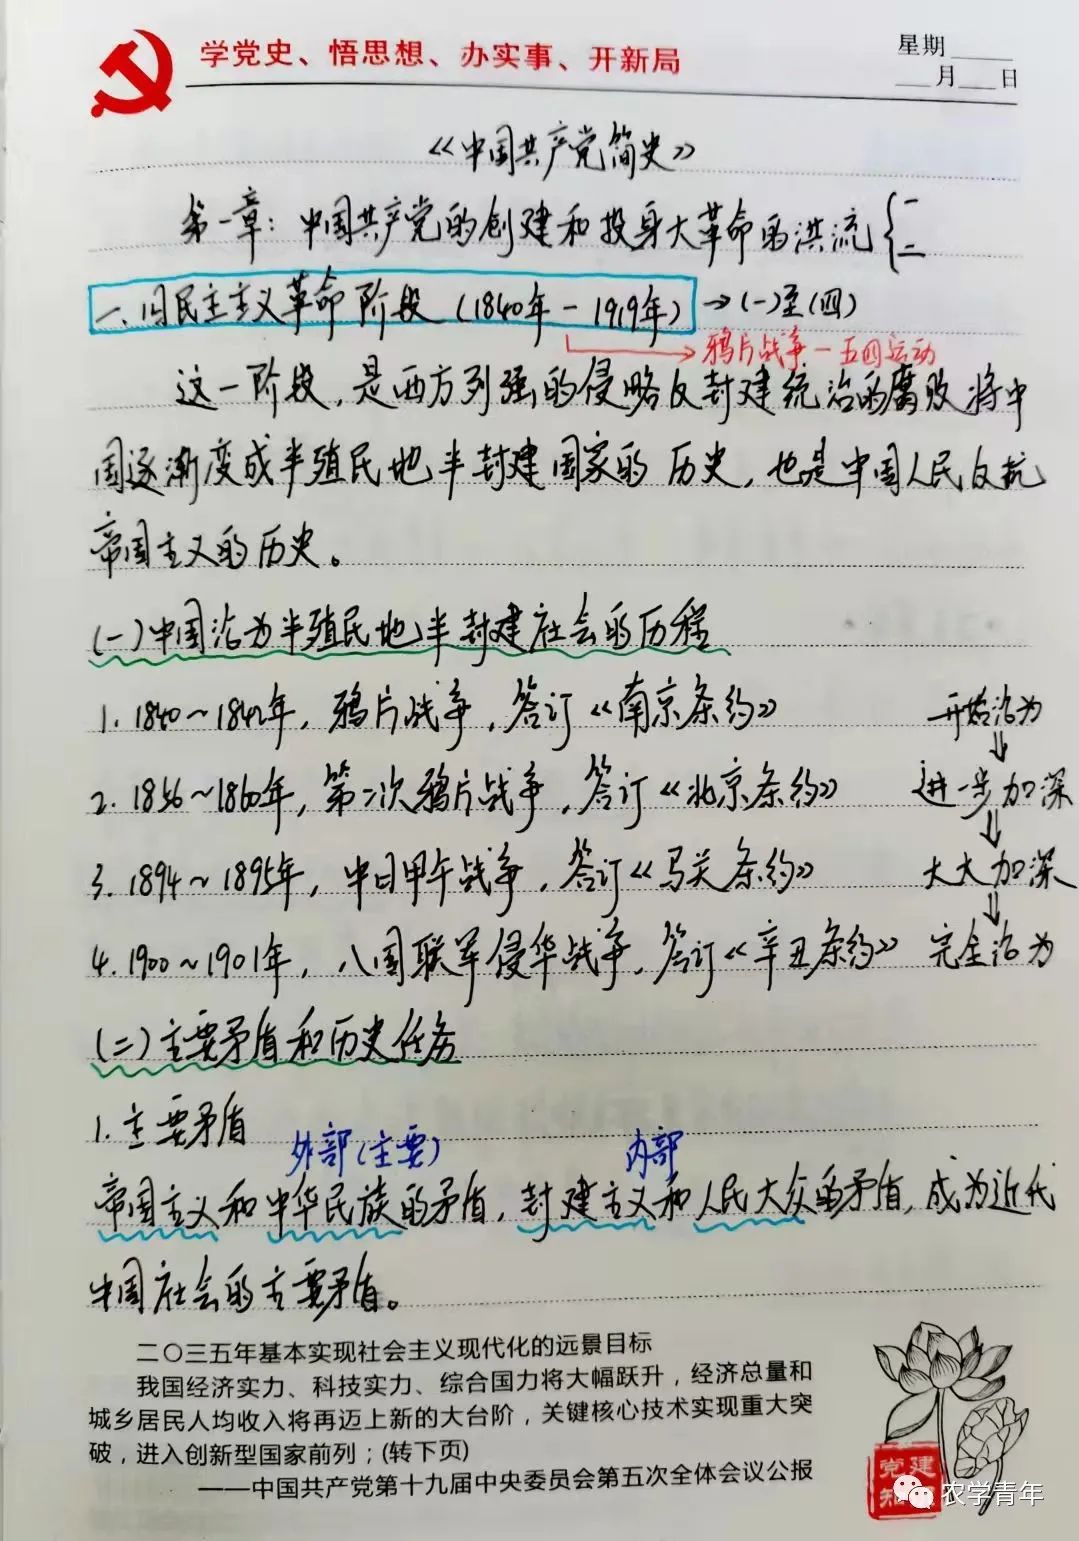 学党史、悟思想、办实事、开新局
星期____
___月___日
《中国共产党简史》
第一章：中国共产党的创建和投身大革命的洪流{一 二
一、旧民主主义革命阶段（1840年－1919年）→(一)至(四)
→鸦片战争－五四运动
这一阶段，是西方列强的侵略及封建统治的腐败将中
国逐渐变成半殖民地半封建国家的历史，也是中国人民反抗
帝国主义的历史。
(一)中国沦为半殖民地半封建社会的历程
1. 1840～1842年，鸦片战争，签订《南京条约》 开始沦为
↓
2. 1856～1860年，第二次鸦片战争，签订《北京条约》 进一步加深
↓
3. 1894～1895年，中日甲午战争，签订《马关条约》 大大加深
↓
4. 1900～1901年，八国联军侵华战争，签订《辛丑条约》 完全沦为
(二)主要矛盾和历史任务
1. 主要矛盾
外部(主要) 内部
帝国主义和中华民族的矛盾，封建主义和人民大众的矛盾，成为近代
中国社会的主要矛盾。
二〇三五年基本实现社会主义现代化的远景目标
我国经济实力、科技实力、综合国力将大幅跃升，经济总量和
城乡居民人均收入将再迈上新的大台阶，关键核心技术实现重大突
破，进入创新型国家前列；(转下页)
——中国共产党第十九届中央委员会第五次全体会议公报
党建
知
农学青年